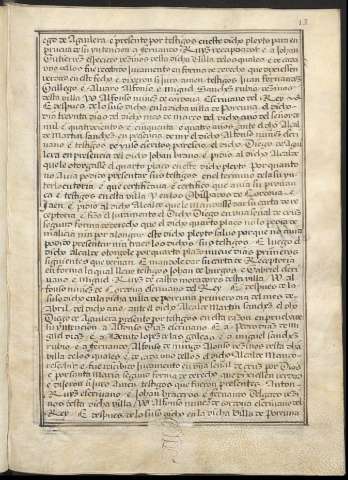 ego de Aguilera e presento por testigos en este dicho pleyto para en
prueua de su yntencion a fernando Ruys recaparote e a Johan
Gutierres espeçiero vesinos desta dicha villa de los quales e de cada
vno dellos fue recebido juramento en forma de derecho que dixiessen
verdad en este fecho e dixeron si juro amen testigos Juan fernandes
Gallego e Aluaro Alfonso e miguel Sanches rubio vesinos
desta villa yo Alfonso nunes de cordoua Escriuano del Rey E
despues de lo suso dicho en la dicha villa de porcuna el dicho
dia treynta dias del dicho mes de março del dicho año del señor de
mil e quatroçientos e çinquenta e quatro años ante el dicho Alcal
de Martin sanches en presençia de my el dicho Alfonso nunes escri
uano e testigos de yuso escritos paresçio el dicho Diego de Agui
lera en presençia del dicho Johan brauo e pidio al dicho Alcalde
que le otorgasse el quarto plaço en este dicho pleyto Por quanto
no Auia podido presentar sus testigos en el termino de la su yn
terlocutoria e que certificaua e certifico que auia su prouan
ça e testigos en esta villa y en los Obispados de Cordoua e
Jaen E pidio al dicho Alcalde que le mandasse dar su carta de re
ceptoria e fizo el juramento el dicho Diego en vna señal de crus
segund forma de derecho que el dicho quarto plaço no lo pedia de
maliçia nin por alongar este dicho pleyto saluo porque no auia
podido presentar nin traer los dichos sus testigos E luego el
dicho Alcalde otorgole por quarto plaço nueue dias primeros
siguientes que vernan E mandole dar su carta de Receptoria
en forma la qual lleue testigos Johan de burgos e Gabriel escri
uano e miguel Ruys de castro moradores desta villa yo al
fonso nunes de Cordoua escriuano del Rey E despues de lo
suso dicho en la dicha villa de porcuna primero dia del mes de
Abril del dicho año ante el dicho Alcalde martin sanches el dicho
Diego de Aguilera presento por testigos en esta rason en prueua de
su yntencion a Alfonso Dias escriuano E a pedro dias de mi
guel dias e a Benito lopes de los galegos e a miguel sanches
rubio e a fernando Alfonso de miguel Alfonso vesinos desta dicha
villa de los quales e de cada vno dellos el dicho Alcalde Mando
resçebir e fue resçibido Juramento en vna señal de crus por Dios
e por santa maria segund forma de derecho que dixiessen verdad
e dixeron si juro Amen testigos que fueron presentes Anton
Ruys escriuano e Johan braceros e fernando delgado vesi
nos desta dicha villa yo Alfonso nunes de cordoua escriuano del
Rey E despues de lo suso dicho en la dicha villa de Porcuna